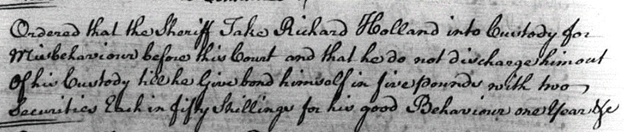 Ordered that the Sheriff Take Richard Holland into Custody for
Misbehaviour before this Court and that he do not discharge him out
Of his Custody till he Give bond himself in five pounds with two
Securities Each in fifty Shillings for his good Behaviour one Year &c